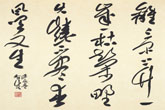 離離原上草一
歲一枯榮野
火燒不盡春
風吹又生